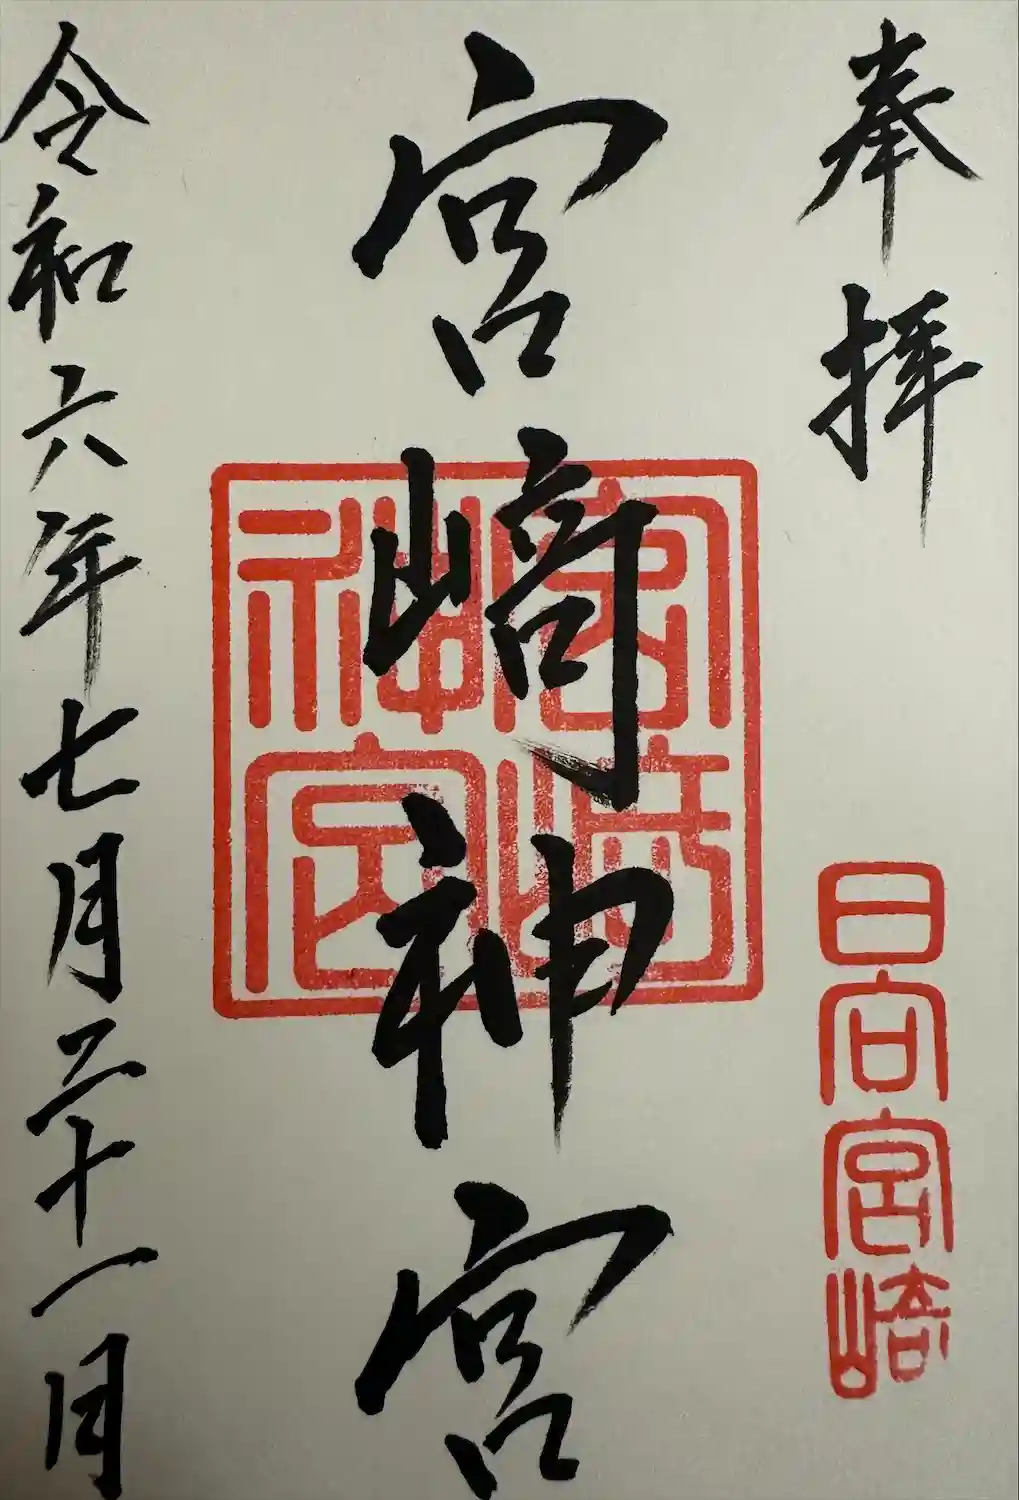 奉拝
日向宮崎
宮﨑神宮
宮崎神宮
令和六年七月三十一日